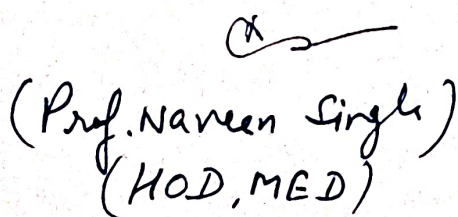 (Prof. Naveen Singh)
(HOD, MED)